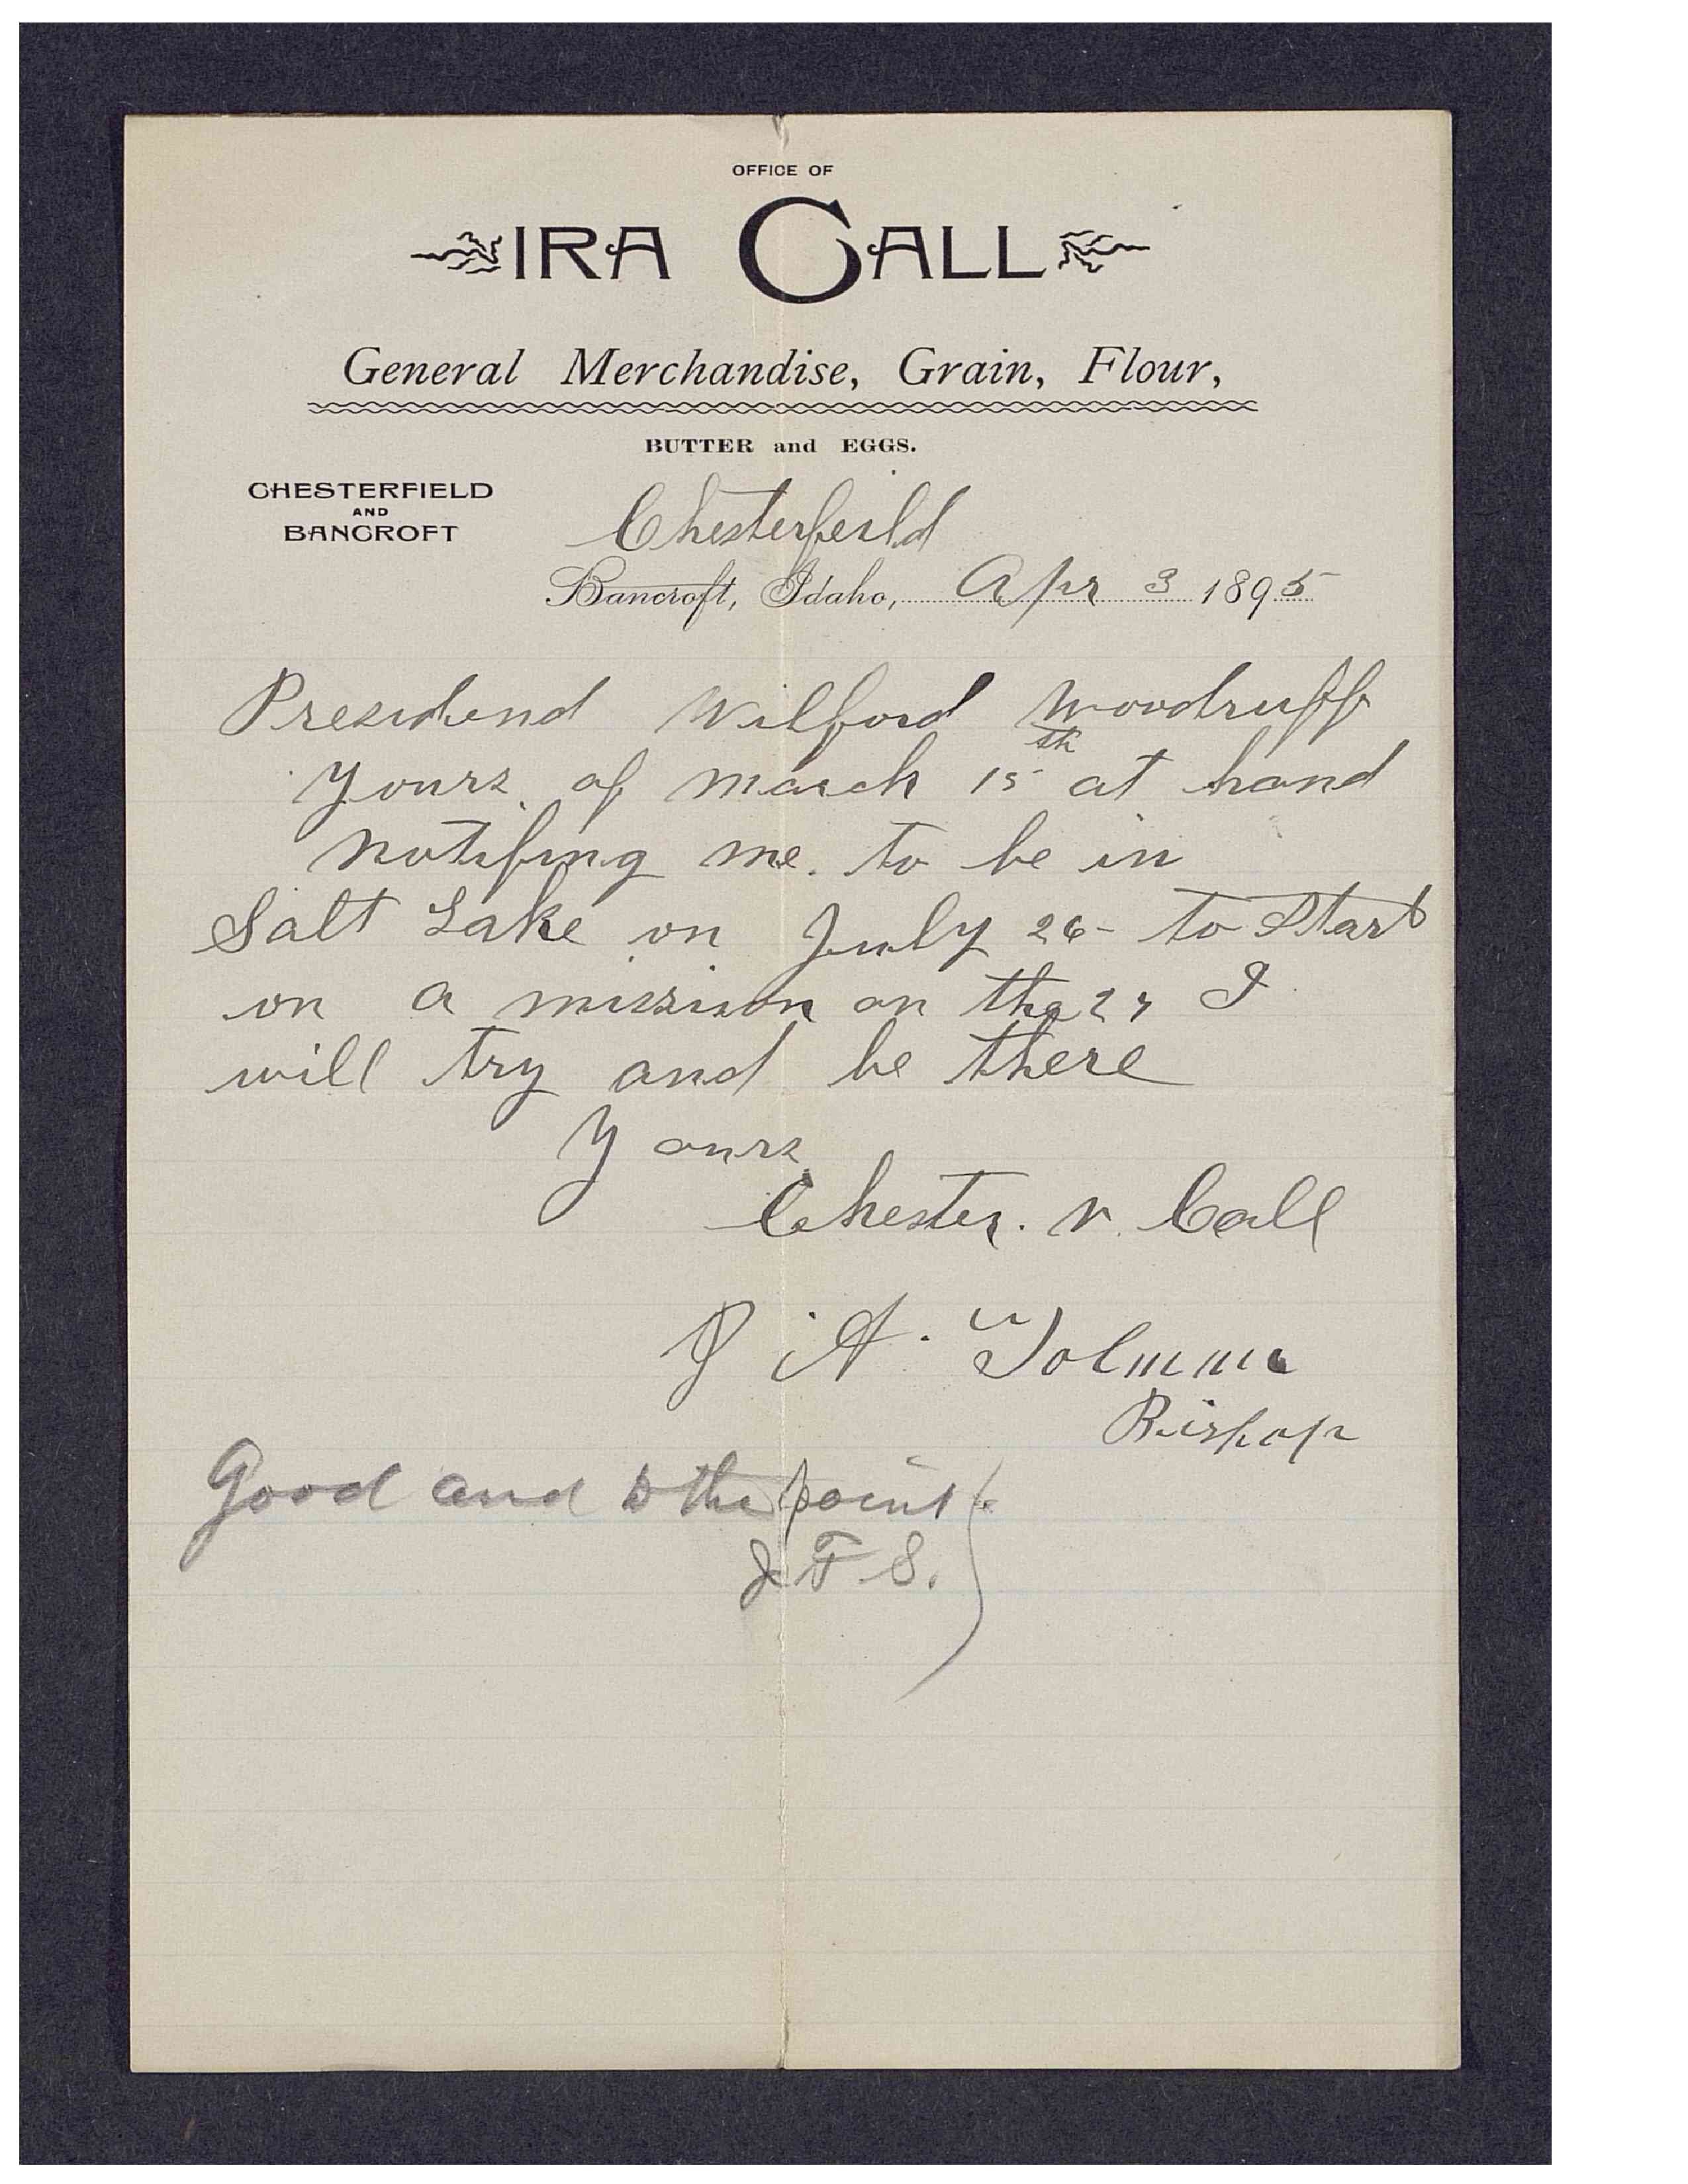 OFFICE OF
IRA CALL
General Merchandise, Grain, Flour,
BUTTER and EGGS.
CHESTERFIELD
AND
BANCROFT
Chesterfeild
Bancroft, Idaho, Apr 3 1895
Presidend Wilford Woodruff
Yours of march 15th at hand
notifing me. to be in
Salt Lake on July 26- to Start
on a mission on the 27 I
will try and be there
Yours
Chester. V. Call
J. A. Tolman
Bishop
Good and to the point
J. F. S.